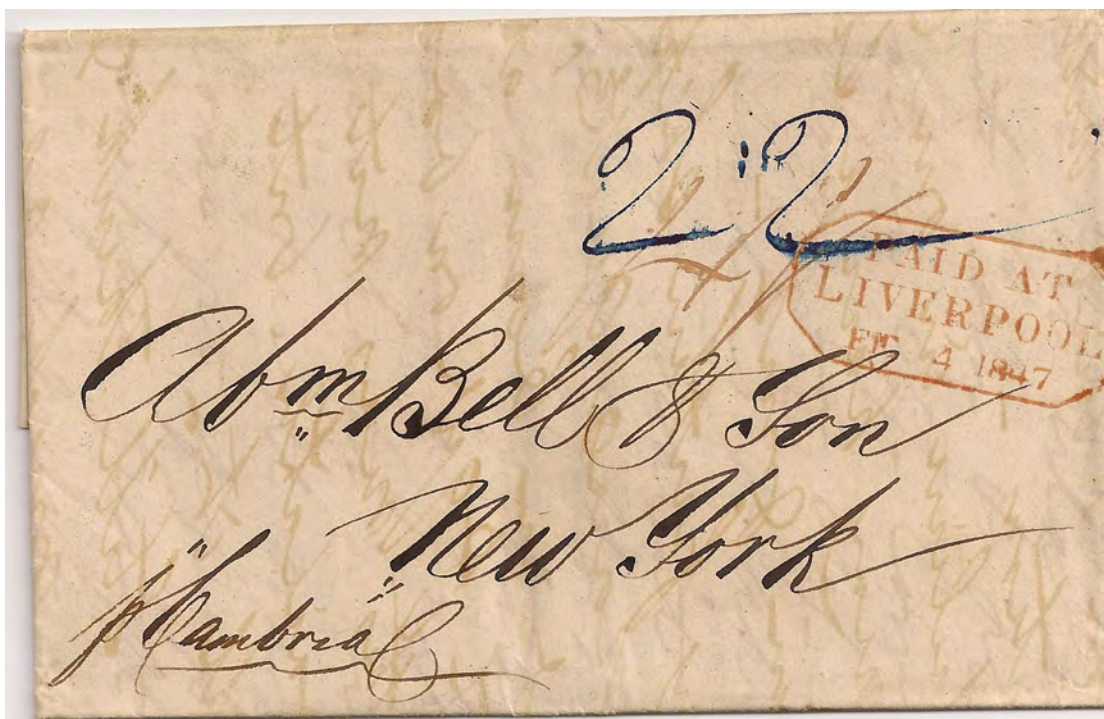 22
1/
PAID AT
LIVERPOOL
FE 4 1847
Abm Bell & Son
New York
p "Cambria"